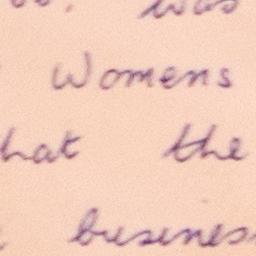 was
Womens
hat the
busines